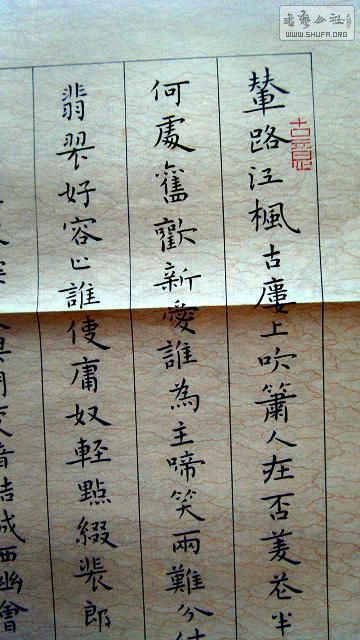 书艺公社
WWW.SHUFA.ORG
古意
輦路江楓古廔上吹簫人在否菱花半
何處舊歡新愛誰為主啼笑兩難分
翡翠好容止誰使庸奴輕點綴裴郎
西幽會